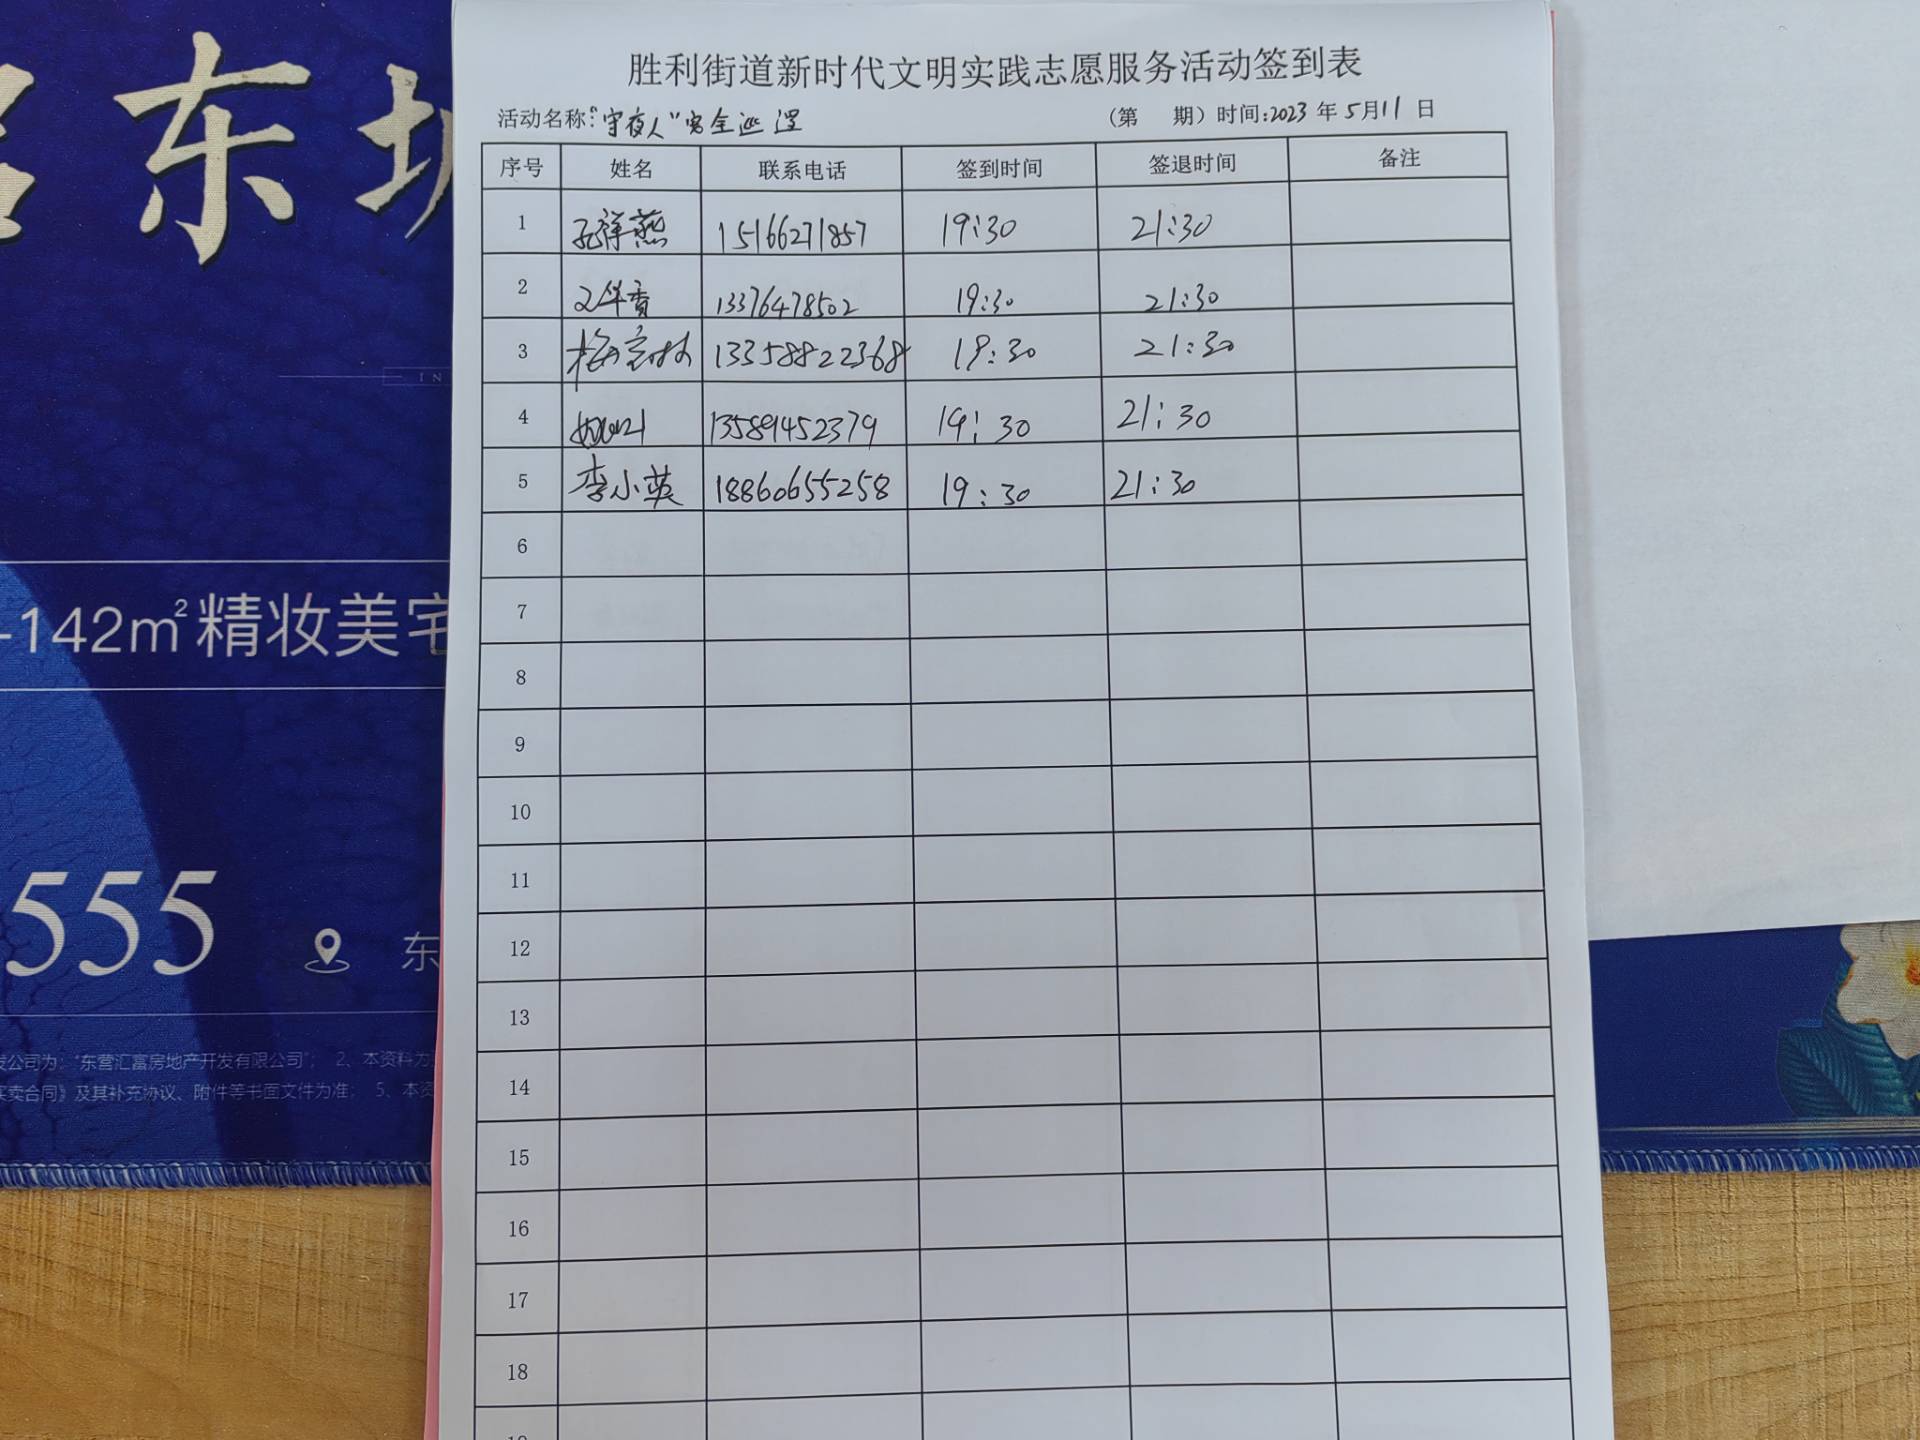 东
胜利街道新时代文明实践志愿服务活动签到表
活动名称:"守夜人"安全巡逻 (第 期) 时间:2023年5月11日
序号 姓名 联系电话 签到时间 签退时间 备注
1 孔祥燕 15166271857 19:30 21:30
2 13376478502 19:30 21:30
3 13358822368 19:30 21:30
4 13589452379 19:30 21:30
5 李小英 18860655258 19:30 21:30
6
7
8
9
10
11
12
13
14
15
16
17
18
IN
-142m²精妆美宅
555
东
发公司为:"东营汇富房地产开发有限公司"; 2、本资料为
买卖合同》及其补充协议、附件等书面文件为准; 5、本资